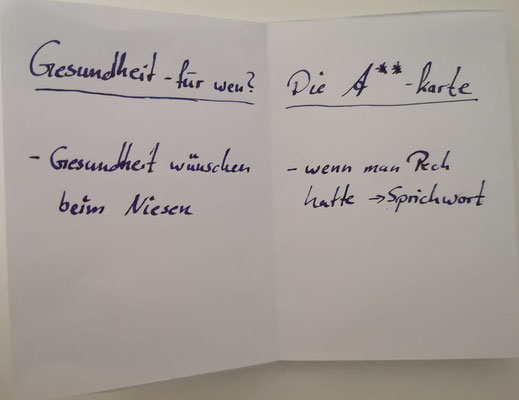 Gesundheit - für wen?
- Gesundheit wünschen
beim Niesen
Die A** -karte
- wenn man Pech
hatte → Sprichwort